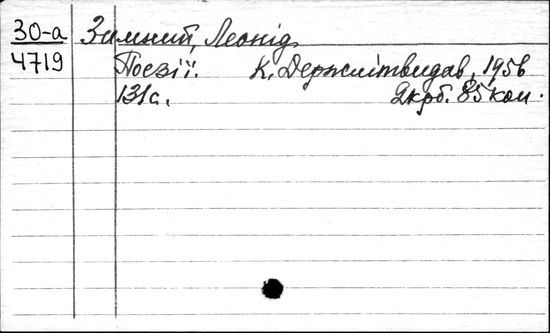 30-а Зимний, Леонід.
4719 Поезії. К. Держлітвидав, 1956
131с. 2крб. 85коп.